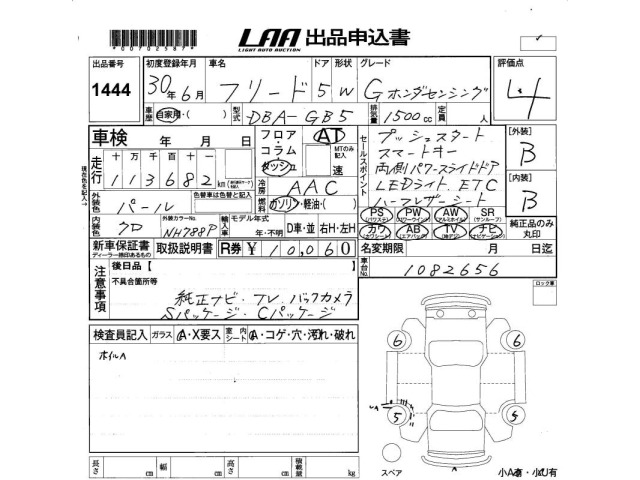 *00702587*
LAA 出品申込書
LIGHT AUTO AUCTION
出品番号 初度登録年月 車名 ドア 形状 グレード 評価点
1444 30年6月 フリード 5 W Gホンダセンシング 4
車歴 自家用・( ) 型式 DBA-GB5 排気量 1500cc 定員 人
車検 年 月 日
フロア・コラム・ダッシュ AT MTのみ記入 速
セールスポイント
プッシュスタート
スマートキー
両側パワースライドドア
LEDライト ETC
ハーフレザーシート
[外装] B
[内装] B
走行 十万千百十
113682 km
冷房 AAC
外装色 色替車は色替と記入 パール
燃料 ガソリン・軽油・( )
PS PW AW SR (サンルーフ)
カワ AB TV ナビ
純正品のみ丸印
内装色 クロ 外装カラーNo. NH788P 輸入車 モデル年式 年・不明 D車・並 右H・左H
新車保証書 取扱説明書 R券 ¥10,060 名変期限 月 日迄
ディーラー捺印あるもの
車台No. 1082656
注意事項
後日品【 】
不具合箇所等
純正ナビ・TV・バックカメラ
Sパッケージ・Cパッケージ
ロック車
検査員記入 ガラス A・X要ス 室内シート A・コゲ・穴・汚れ・破れ
ホイルA
6 6
5 5
UA
A
スペア
長さ cm 幅 cm 高さ cm 積載量 kg